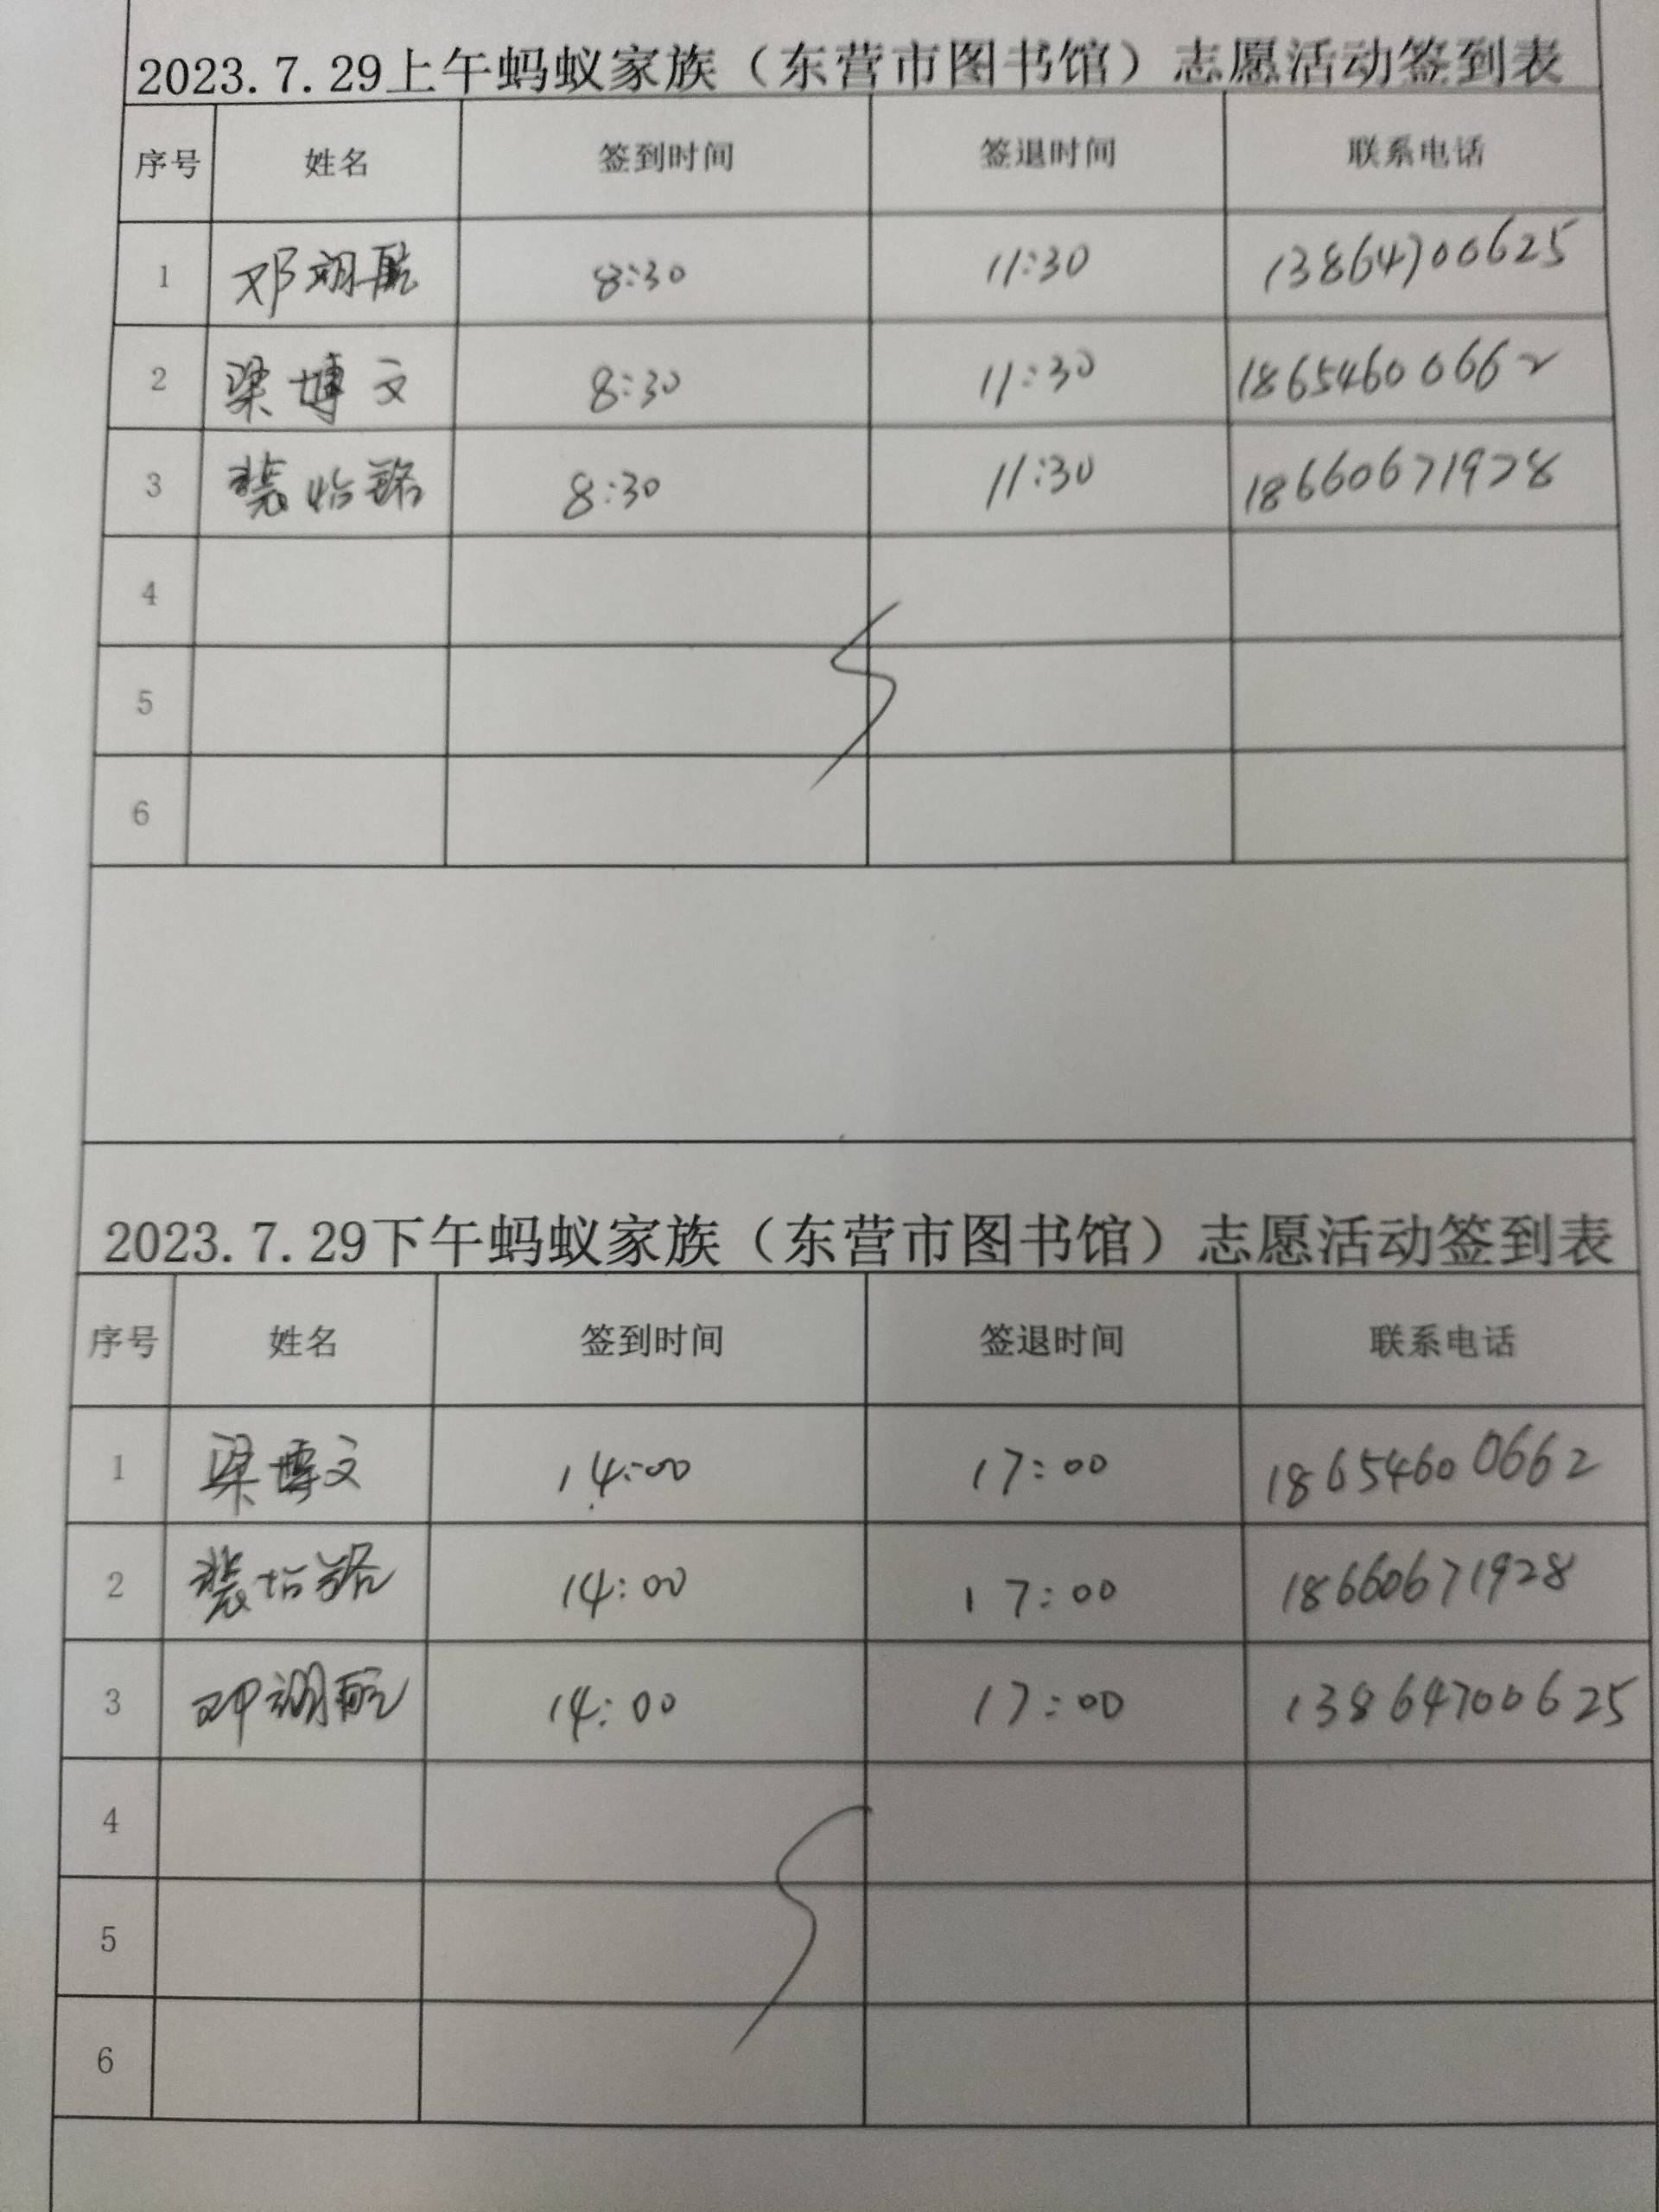 2023.7.29上午蚂蚁家族（东营市图书馆）志愿活动签到表
序号 姓名 签到时间 签退时间 联系电话
1 邓翊航 8:30 11:30 13864700625
2 梁博文 8:30 11:30 18654600662
3 裴怡铭 8:30 11:30 18660671928
4
5
6
2023.7.29下午蚂蚁家族（东营市图书馆）志愿活动签到表
序号 姓名 签到时间 签退时间 联系电话
1 梁博文 14:00 17:00 18654600662
2 裴怡铭 14:00 17:00 18660671928
3 邓翊航 14:00 17:00 13864700625
4
5
6